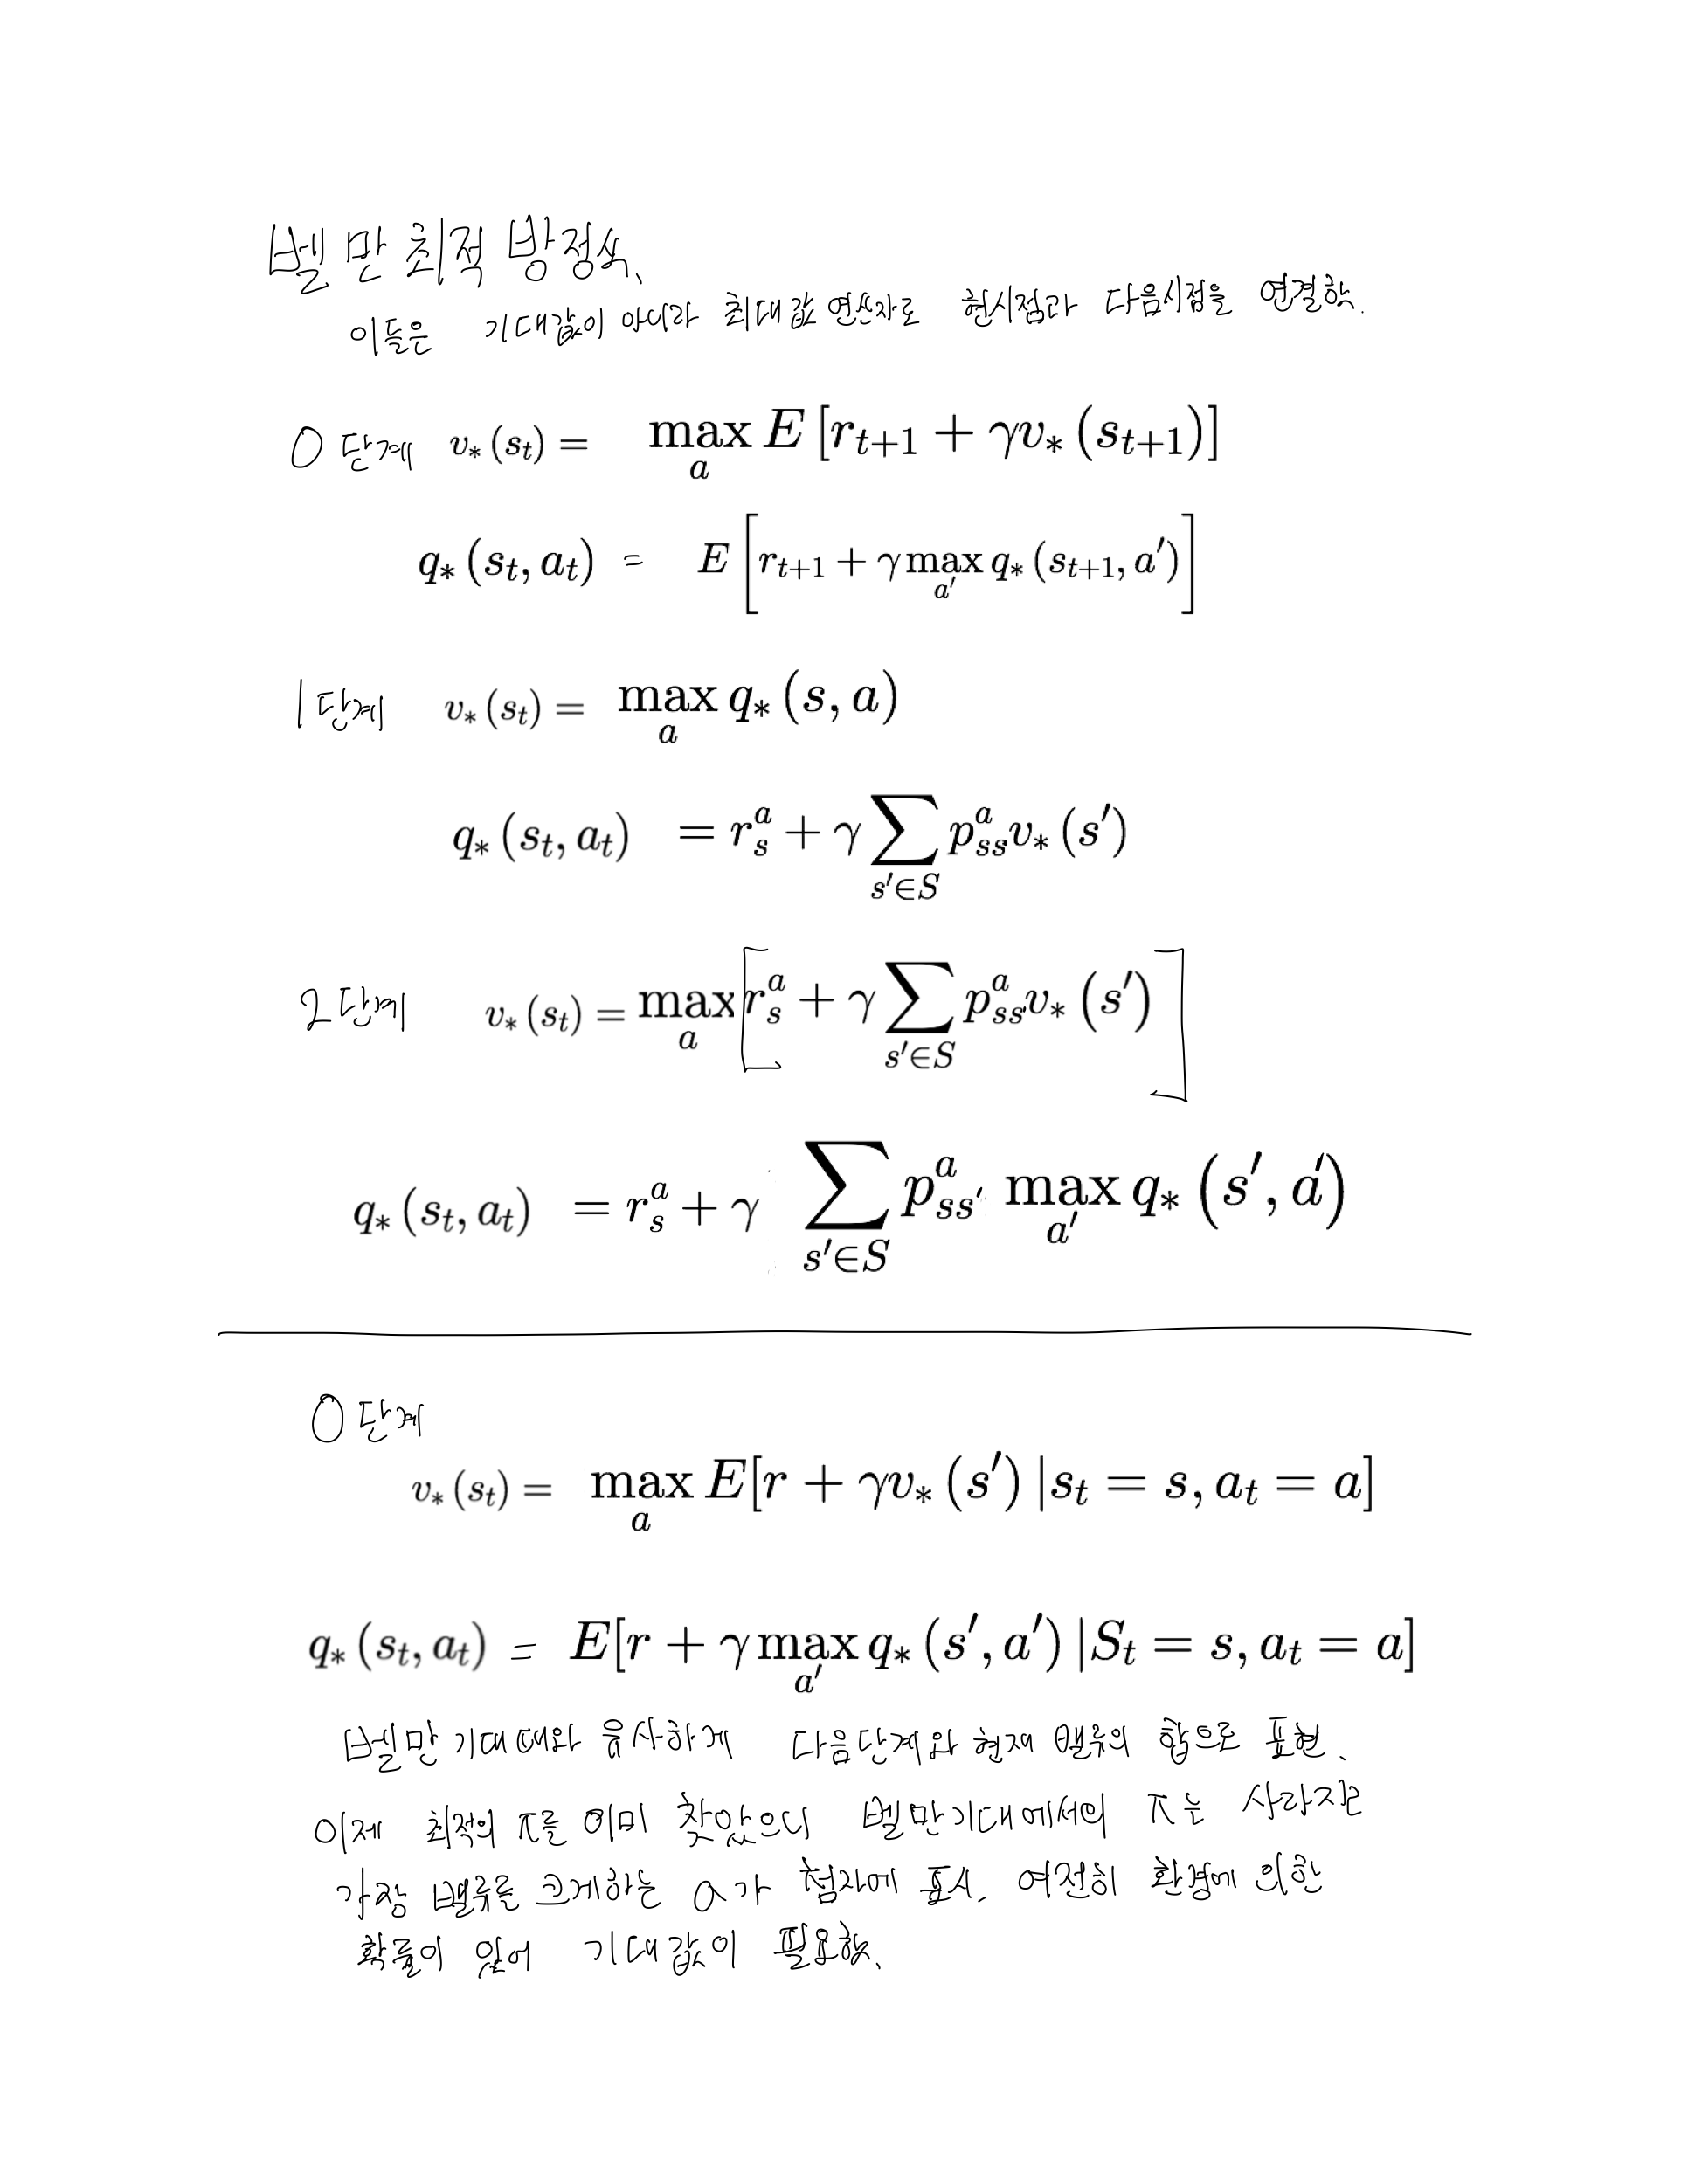 벨만 최적 방정식.
이들은 기대값이 아니라 최대값 연산자로 현시점과 다음시점을 연결함.
0단계 v_*(s_t) = max_a E[r_{t+1} + γv_*(s_{t+1})]
q_*(s_t, a_t) = E[r_{t+1} + γ max_{a'} q_*(s_{t+1}, a')]
1단계 v_*(s_t) = max_a q_*(s, a)
q_*(s_t, a_t) = r_s^a + γ ∑_{s'∈S} p_{ss'}^a v_*(s')
2단계 v_*(s_t) = max_a [r_s^a + γ ∑_{s'∈S} p_{ss'}^a v_*(s')]
q_*(s_t, a_t) = r_s^a + γ ∑_{s'∈S} p_{ss'}^a max_{a'} q_*(s', a')
0단계
v_*(s_t) = max_a E[r + γv_*(s') |s_t = s, a_t = a]
q_*(s_t, a_t) = E[r + γ max_{a'} q_*(s', a') |S_t = s, a_t = a]
벨만 기대 때와 유사하게 다음단계와 현재 밸류의 합으로 표현.
이제 최적의 π를 이미 찾았으니 벨만기대에서의 π는 사라지고
가장 밸류를 크게하는 a가 첨자에 표시. 여전히 환경에 의한
확률이 있어 기대값이 필요함.